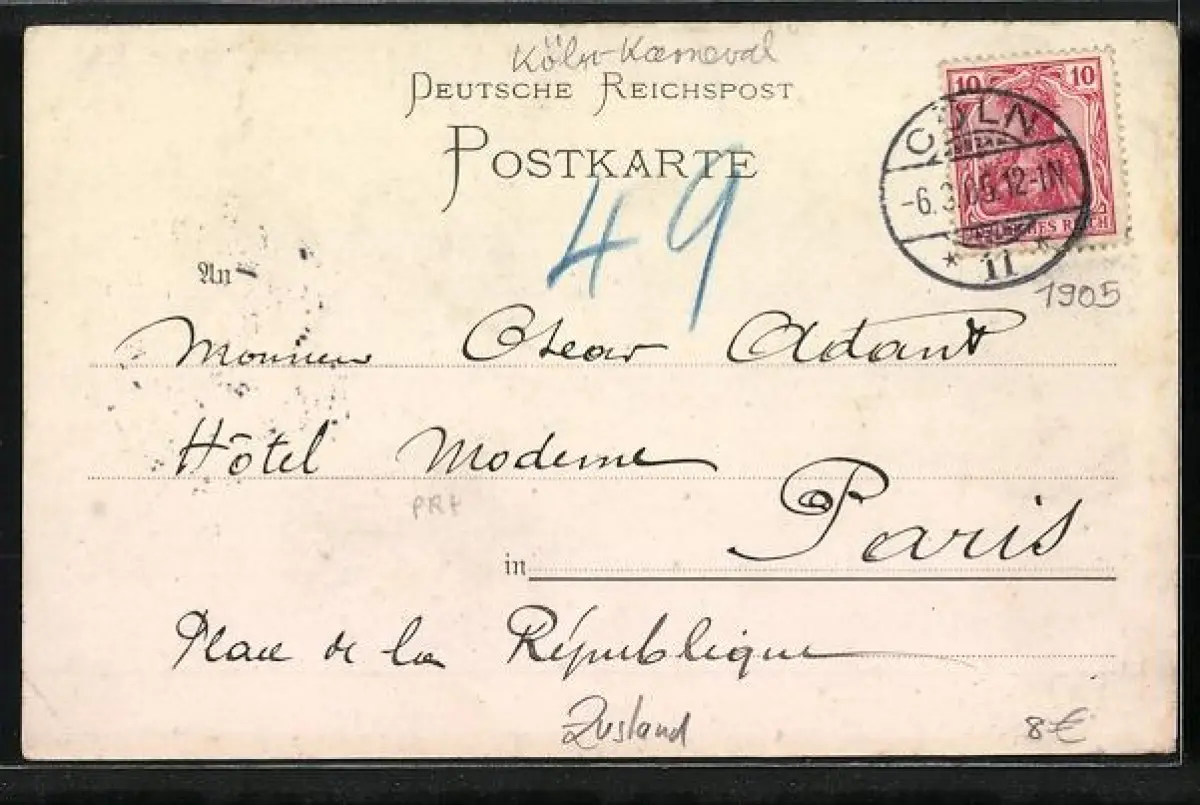 Köln-Karneval
DEUTSCHE REICHSPOST
POSTKARTE
10 10
DEUTSCHES REICH
CÖLN
-6.3.05.12-1N
* 11 *
1905
49
An
Monsieur Oscar Adant
Hôtel Moderne
PRt
in Paris
Place de la République
Zustand
8€